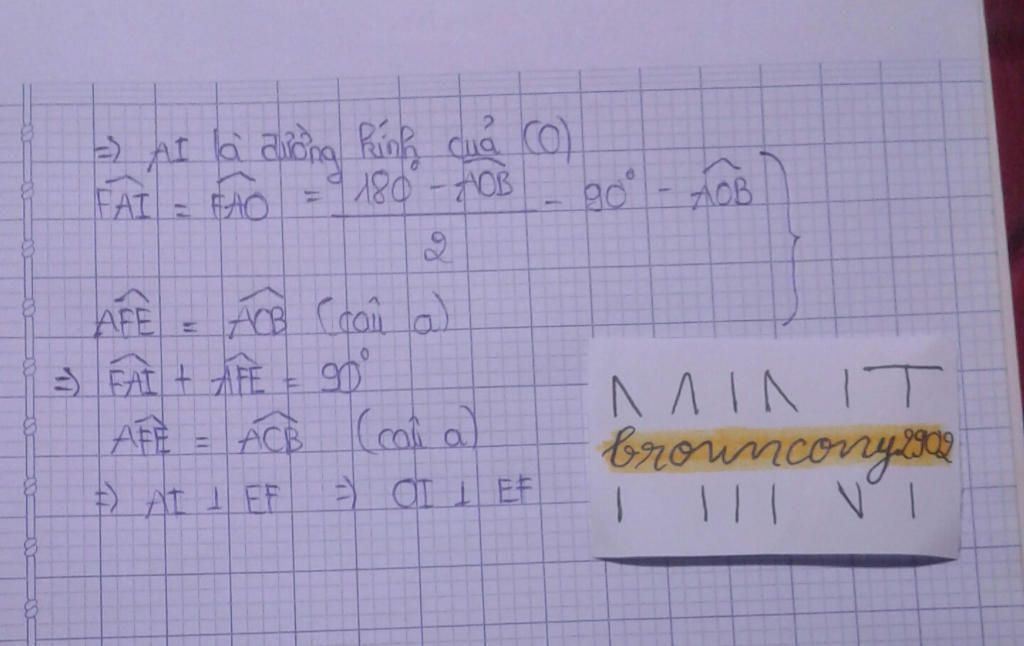 ⇒ AI là đường kính của (O)
FAI = FAO = (180° - AOB)/2 = 90° - AOB
AFE = ACB (câu a)
⇒ FAI + AFE = 90°
AFE = ACB (câu a)
⇒ AI ⊥ EF ⇒ OI ⊥ EF
browncony2902